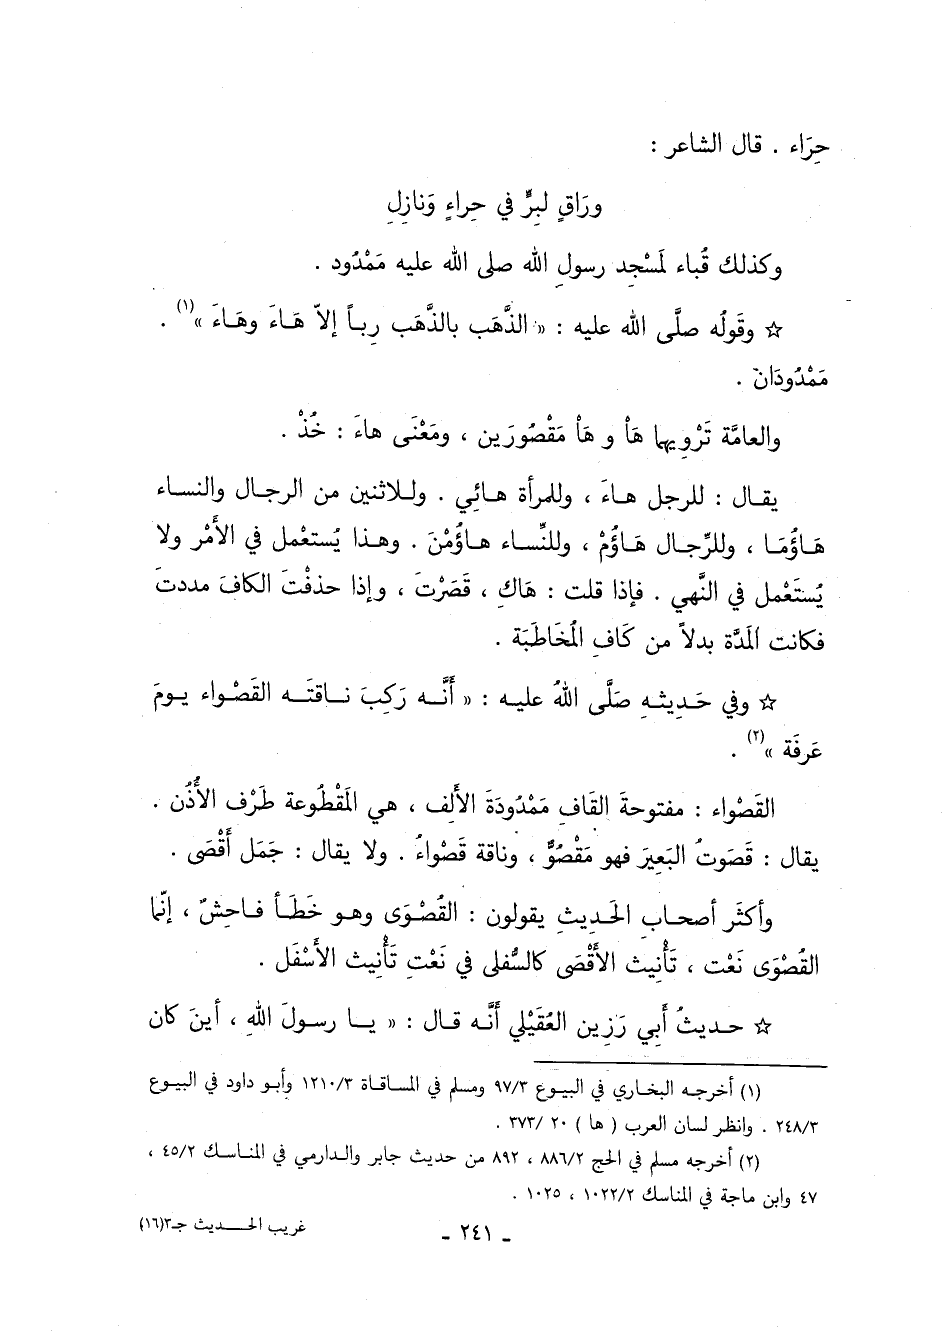 حِرَاء . قال الشاعر :
ورَاقٍ لبِرٍّ في حِراءٍ وَنازِلِ
وكذلك قُباء لَمسْجِد رسولِ الله صلى الله عليه مَمْدُود .
☆ وقَولُه صلَّى الله عليه : « الذَّهَب بالذَّهَب رِباً إلاّ هَاءَ وهَاءَ »(١) .
مَمْدُودَان .
والعامَّة تَرْوِيها هَاْ و هَاْ مَقْصُورَين ، ومَعْنَى هاءَ : خُذْ .
يقال : للرجل هاءَ ، وللمرأة هائِي . وللاثنين من الرجال والنساء
هَاؤُمَا ، وللرِّجال هَاؤُمْ ، وللنِّساء هاؤُمْنَ . وهذا يُستعْمل في الأمْر ولا
يُستَعْمل في النَّهي . فإذا قلت : هَاكِ ، قَصَرْتَ ، وإذا حذفْتَ الكافَ مددتَ
فكانت المَدَّة بدلاً من كَافِ المُخَاطَبَة .
☆ وفي حَدِيثِهِ صَلَّى اللهُ عليه : « أَنَّه رَكِبَ نَاقتَه القَصْواء يومَ
عَرفَة »(٢) .
القَصْواء : مفتوحةَ القَافِ مَمْدُودَةَ الألِف ، هي المَقْطُوعة طَرْف الأُذُن .
يقال : قَصَوتُ البَعِيرَ فهو مَقْصُوٌّ ، وناقة قَصْواءُ . ولا يقال : جَمَل أَقْصَى .
وأكثَر أصحاب الحَدِيثِ يقولون : القُصْوَى وهو خَطَأ فَاحِشٌ ، إنّما
القُصْوَى نَعْت ، تَأْنِيث الأقْصَى كالسُّفلى في نَعْتِ تَأْنِيث الأسْفَل .
☆ حديثُ أبي رَزِين العُقَيْلي أَنَّه قال : « يا رسولَ اللهِ ، أينَ كان
(١) أخرجه البخاري في البيوع ٩٧/٣ ومسلم في المساقاة ١٢١٠/٣ وأبو داود في البيوع
٢٤٨/٣ . وانظر لسان العرب ( ها ) ٢٠ /٣٧٣ .
(٢) أخرجه مسلم في الحج ٨٨٦/٢ ، ٨٩٢ من حديث جابر والدارمي في المناسك ٤٥/٢ ،
٤٧ وابن ماجة في المناسك ١٠٢٢/٢ ، ١٠٢٥ .
- ٢٤١ -
غريب الحديث جـ٣(١٦)